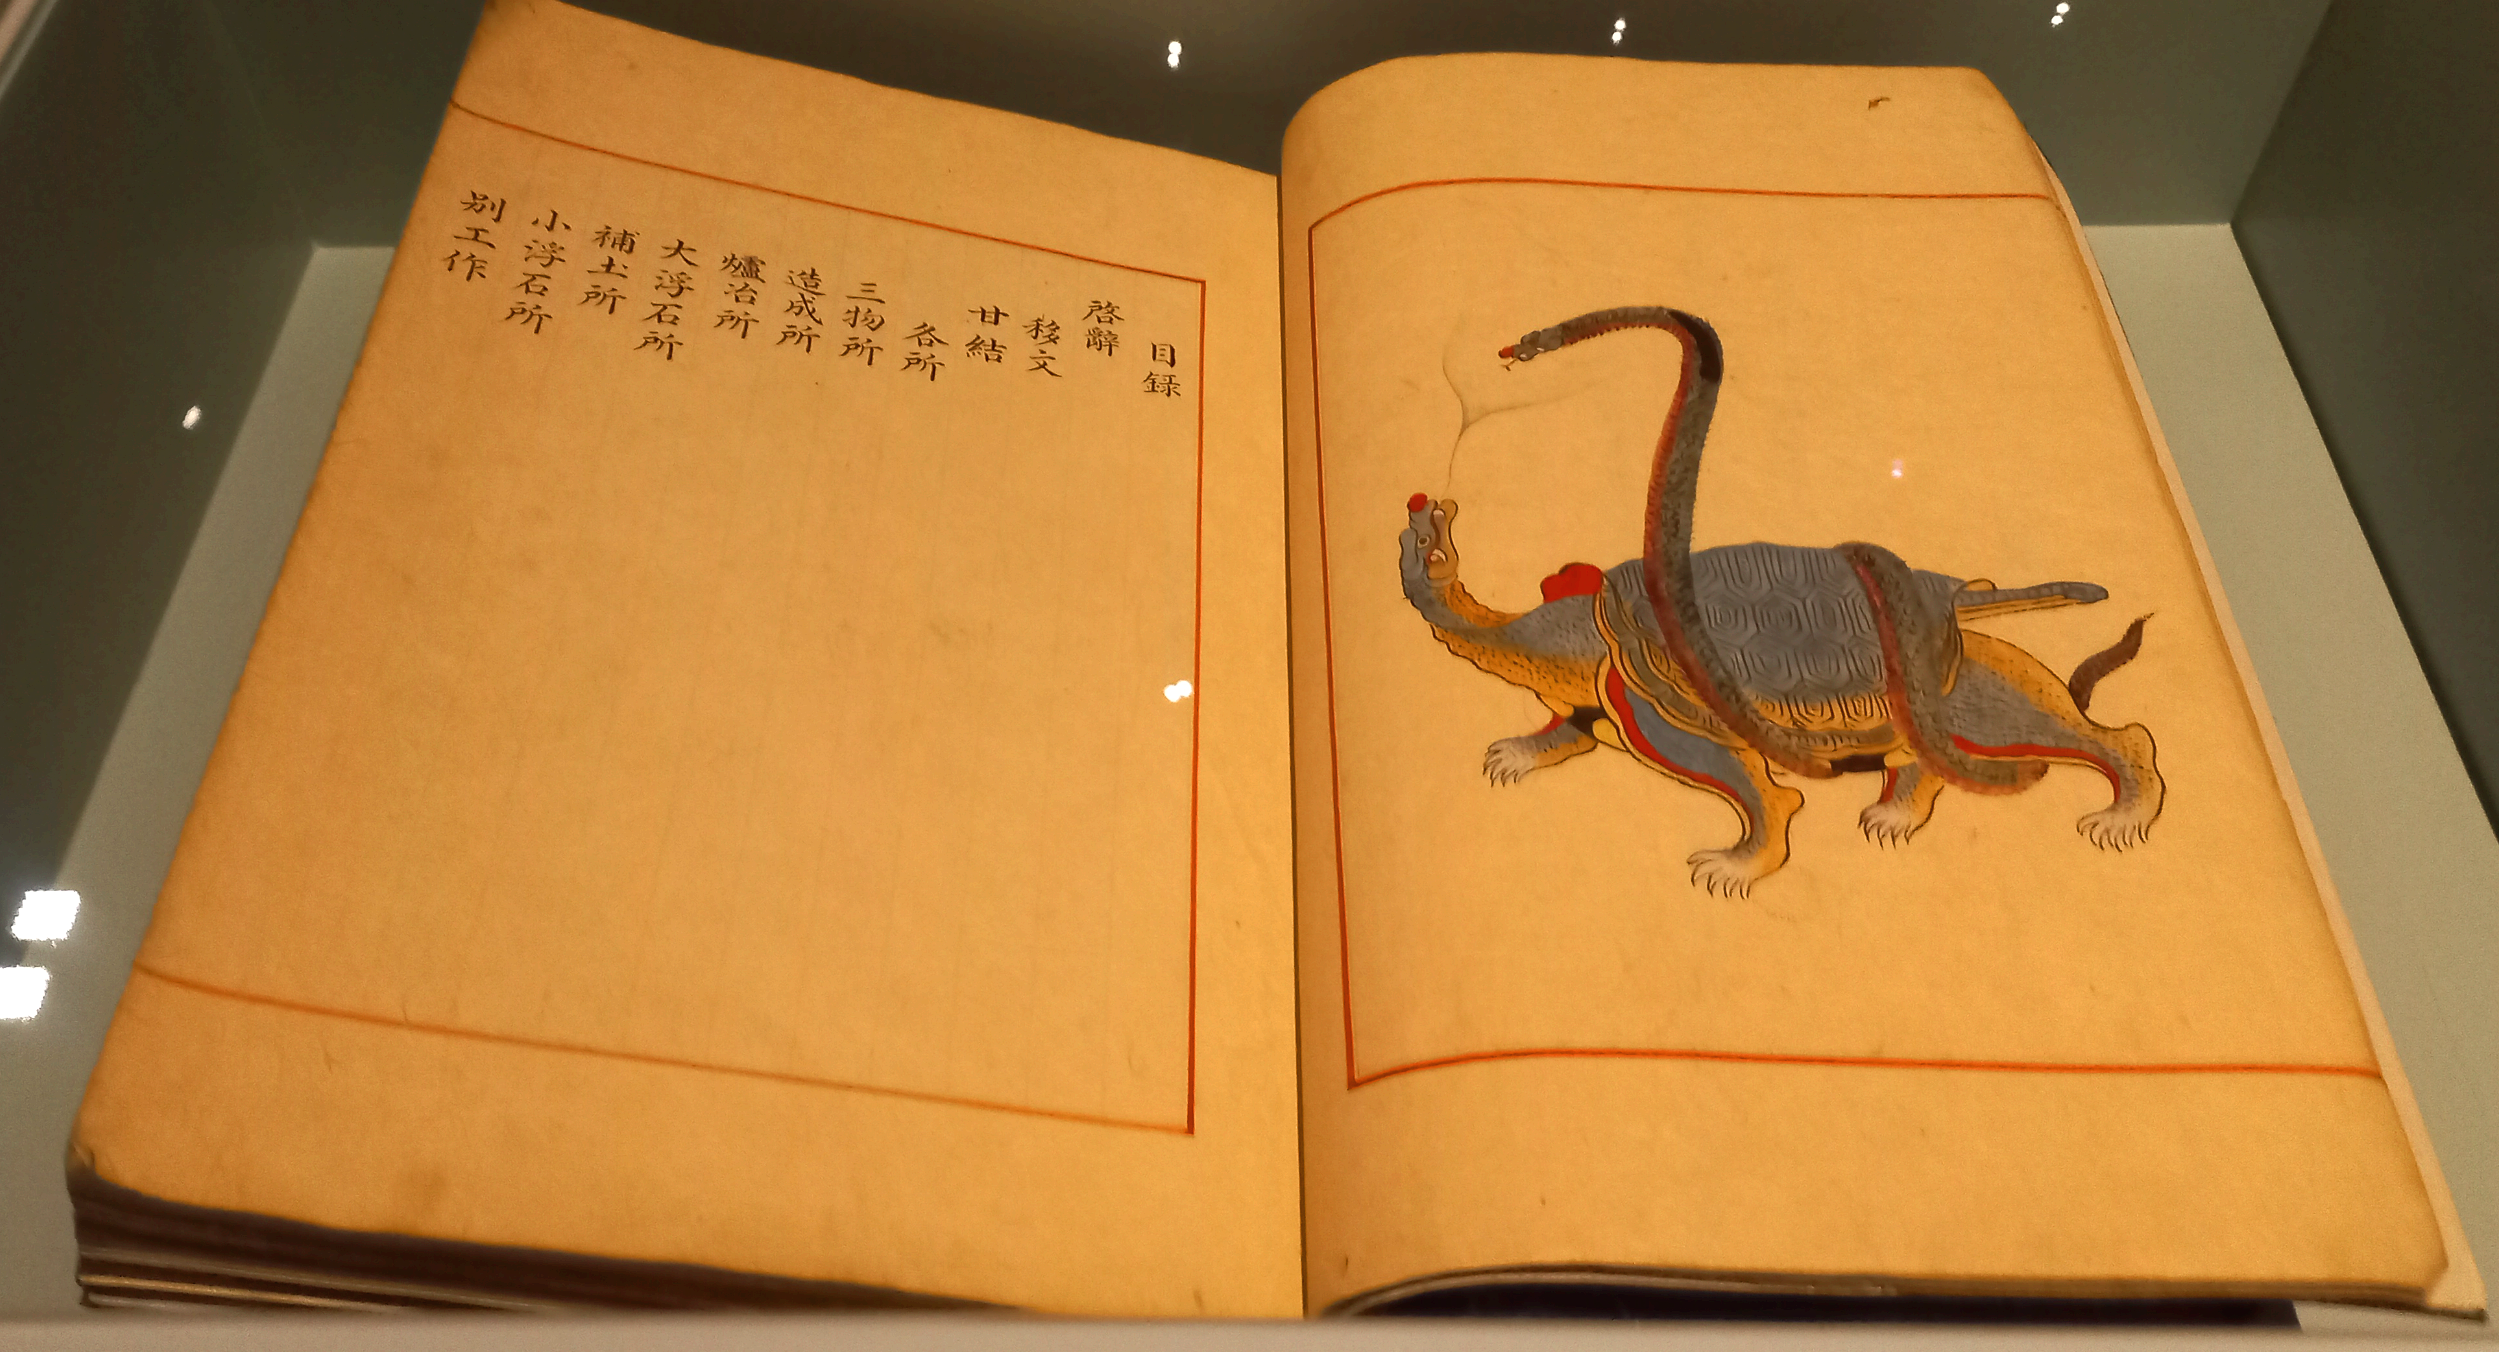 目録
啓辭
移文
甘結
各所
三物所
造成所
爐冶所
大浮石所
補土所
小浮石所
別工作